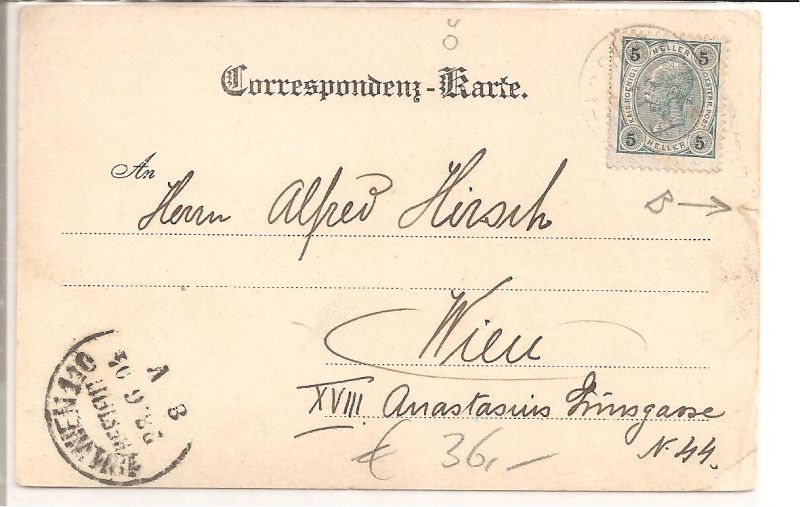 ö
Correspondenz-Karte.
5 HELLER 5
KAIS. KOENIGL.
OESTERR. POST
5 HELLER 5
B →
An
Herrn Alfred Hirsch
Wien
XVIII. Anastasius Grünsgasse
N. 44.
€ 36,-
WIEN
BESTELLT